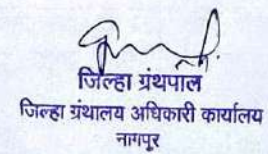 जिल्हा ग्रंथपाल
जिल्हा ग्रंथालय अधिकारी कार्यालय
नागपूर